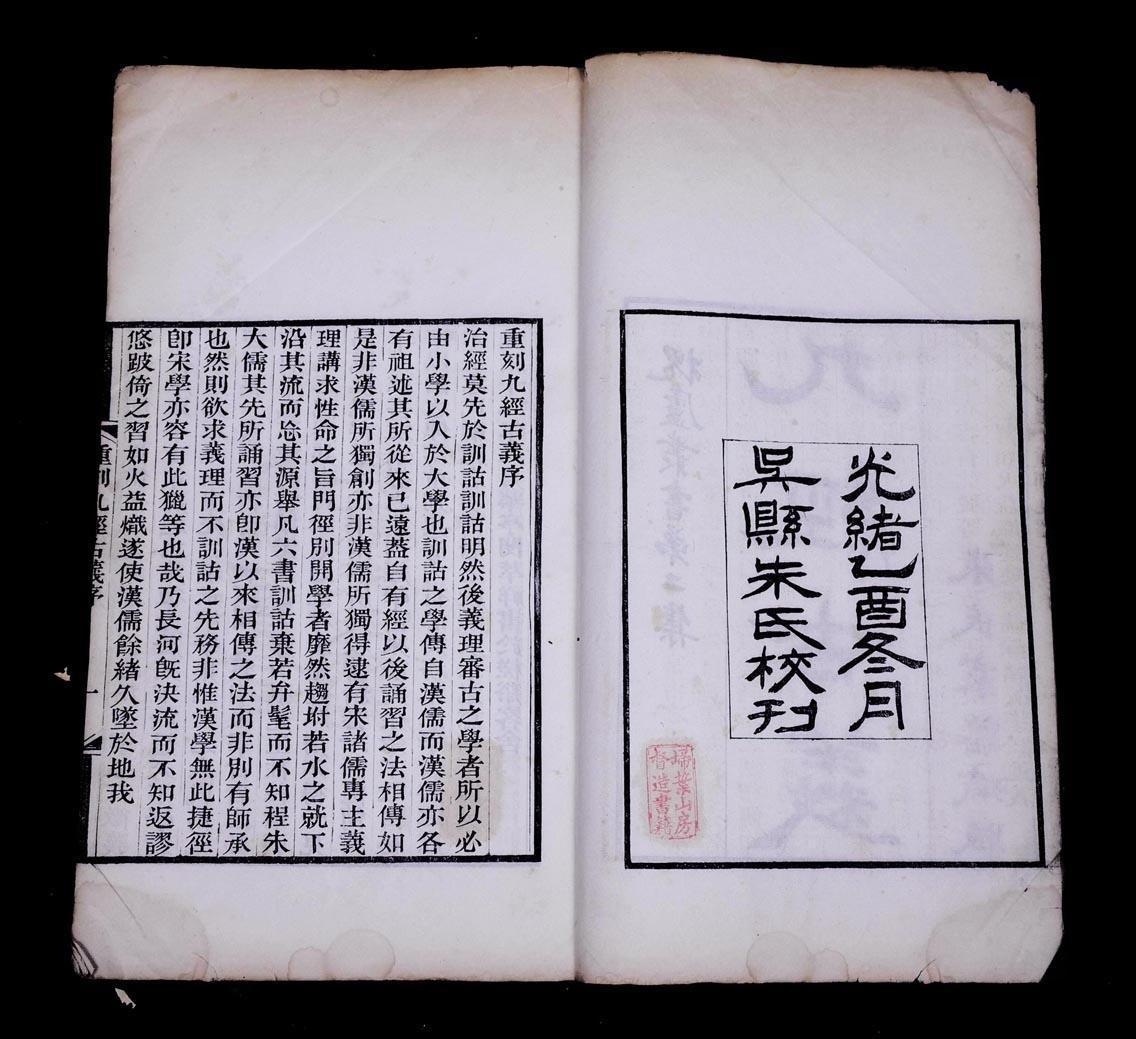 光緒乙酉冬月
吳縣朱氏校刊
埽葉山房
督造書籍
重刻九經古義序
治經莫先於訓詁訓詁明然後義理審古之學者所以必
由小學以入於大學也訓詁之學傳自漢儒而漢儒亦各
有祖述其所從來已遠蓋自有經以後誦習之法相傳如
是非漢儒所獨創亦非漢儒所獨得逮有宋諸儒專主義
理講求性命之旨門徑別開學者靡然趨坿若水之就下
沿其流而忩其源舉凡六書訓詁棄若弁髦而不知程朱
大儒其先所誦習亦卽漢以來相傳之法而非別有師承
也然則欲求義理而不訓詁之先務非惟漢學無此捷徑
卽宋學亦容有此獵等也哉乃長河旣決流而不知返謬
悠跛倚之習如火益熾遂使漢儒餘緒久墜於地我
重刻九經古義序
一